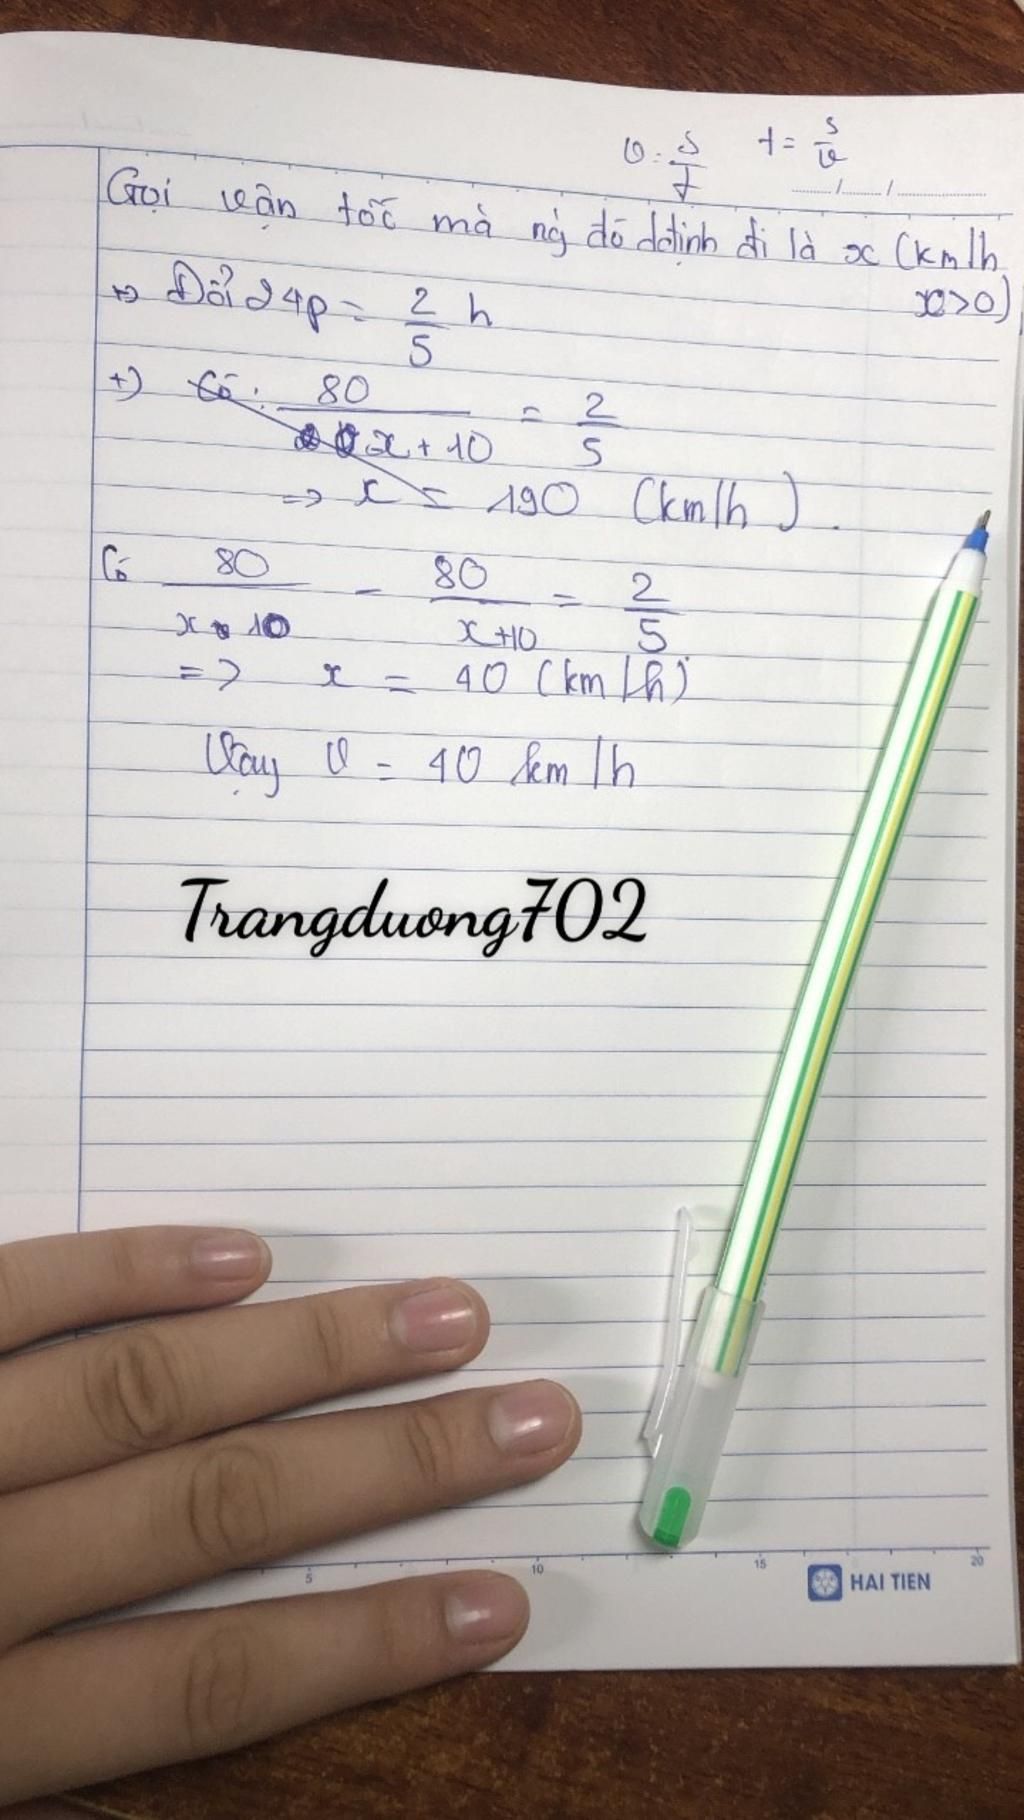 v = s/t t = s/v
Gọi vận tốc mà ng` đó dđịnh đi là x (km/h
x>0)
+) Đổi 24p = 2/5 h
+) Có: 80/(x+10) = 2/5
=> x = 190 (km/h).
Có 80/(x 10) - 80/(x+10) = 2/5
=> x = 40 (km/h)
Vậy v = 40 km/h
Trangduong702
5 10 15 20
HAI TIEN